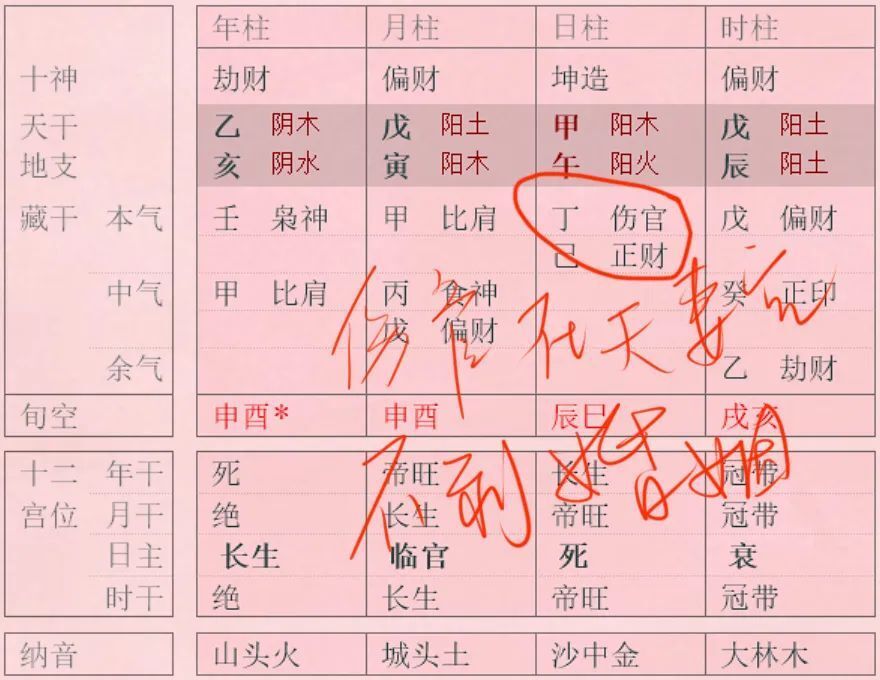 年柱 月柱 日柱 时柱
十神 劫财 偏财 坤造 偏财
天干 乙 阴木 戊 阳土 甲 阳木 戊 阳土
地支 亥 阴水 寅 阳木 午 阳火 辰 阳土
藏干 本气 壬 枭神 甲 比肩 丁 伤官 戊 偏财
己 正财
中气 甲 比肩 丙 食神 癸 正印
戊 偏财
余气 乙 劫财
伤官在夫妻宫
旬空 申酉* 申酉 辰巳 戌亥
不利婚姻
十二 年干 死 帝旺 长生 冠带
宫位 月干 绝 长生 帝旺 冠带
日主 长生 临官 死 衰
时干 绝 长生 帝旺 冠带
纳音 山头火 城头土 沙中金 大林木